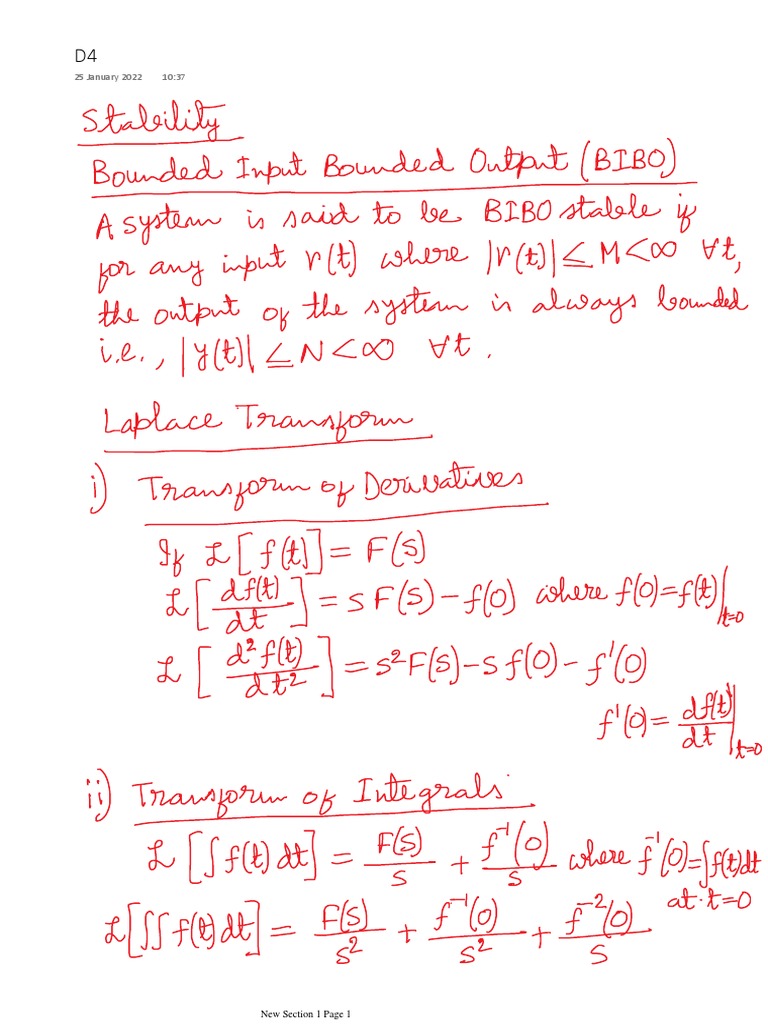 D4
25 January 2022 10:37
Stability
Bounded Input Bounded Output (BIBO)
A system is said to be BIBO stable if
for any input r(t) where |r(t)| ≤ M < ∞ ∀t,
the output of the system is always bounded
i.e., |y(t)| ≤ N < ∞ ∀t.
Laplace Transform
i) Transform of Derivatives
If ℒ[f(t)] = F(s)
ℒ[df(t)/dt] = sF(s) - f(0) where f(0) = f(t)|t=0
ℒ[d²f(t)/dt²] = s²F(s) - sf(0) - f'(0)
f'(0) = df(t)/dt|t=0
ii) Transform of Integrals
ℒ[∫f(t)dt] = F(s)/s + f⁻¹(0)/s where f⁻¹(0) = ∫f(t)dt
at t=0
ℒ[∫∫f(t)dt] = F(s)/s² + f⁻¹(0)/s² + f⁻²(0)/s
New Section 1 Page 1